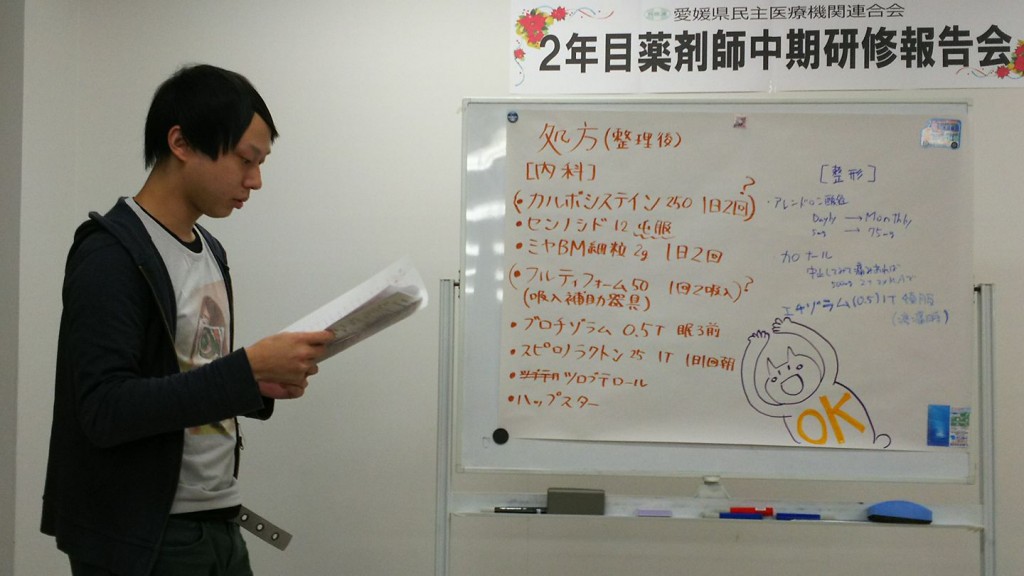 愛媛県民主医療機関連合会
2年目薬剤師中期研修報告会
処方(整理後)
[内科]
(・カルボシステイン 250 1日2回)?
・センノシド 12
・ミヤBM細粒 2g 1日2回
(・フルティフォーム 50 1回2吸入)?
(吸入補助器具)
・ブロチゾラム 0.5T 眠前
・スピロノラクトン 25 1T 1日1回朝
・ツロブテロール
・ハップスター
[整形]
・アレンドロン酸
Daily → Monthly
5mg → 75mg
カロナール
エチゾラム(0.5)1T
OK